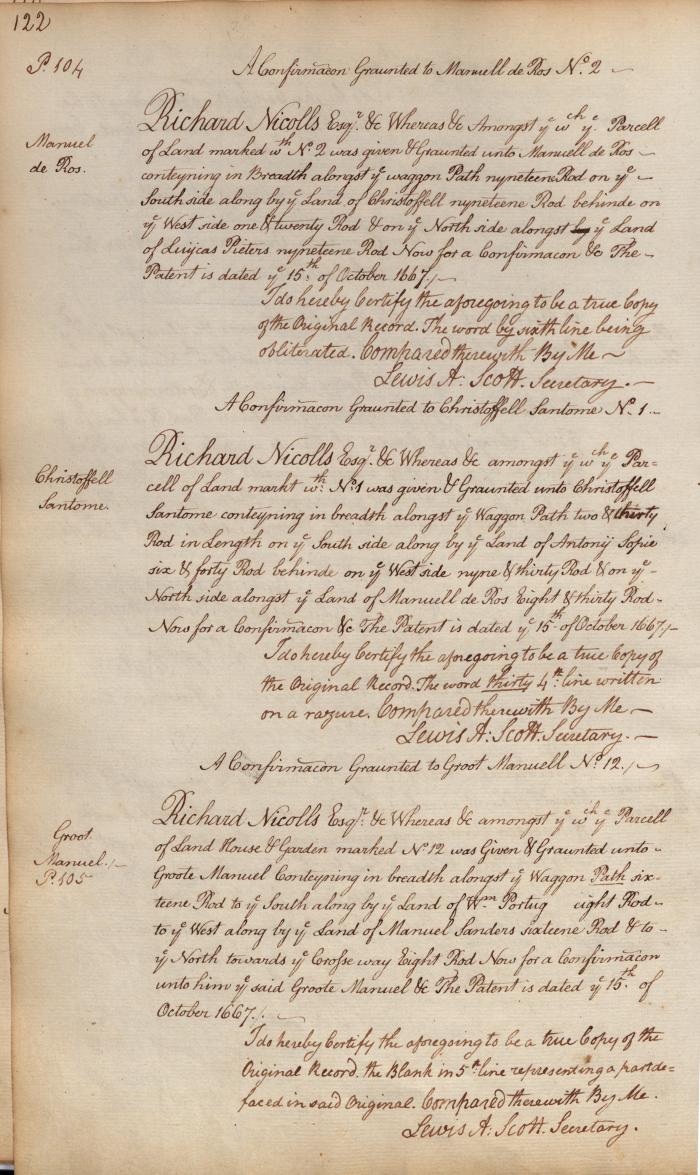 122
P. 104
A Confirmacon Graunted to Manuell de Ros No. 2
Manuel
de Ros.
Richard Nicolls Esqr. &c Whereas &c Amongst ye wch ye Parcell
of Land marked wth No. 2 was given & Graunted unto Manuell de Ros
conteyning in Breadth alongst ye waggon Path nyneteene Rod on ye
South side along by ye Land of Christoffell nyneteene Rod behinde on
ye West side one & twenty Rod & on ye North side alongst by ye Land
of Luijcas Pieters nyneteene Rod Now for a Confirmacon &c The
Patent is dated ye 15th of October 1667./
I do hereby Certify the aforegoing to be a true Copy
of the Original Record. The word by sixth line being
obliterated. Compared therewith By Me
Lewis A: Scott. Secretary.
A Confirmacon Graunted to Christoffell Santome No. 1.
Christoffell
Santome.
Richard Nicolls Esqr. &c Whereas &c amongst ye wch ye Par=
cell of Land markt wth: No. 1 was given & Graunted unto Christoffell
Santome conteyning in breadth alongst ye Waggon Path two & thirty
Rod in Length on ye South side along by ye Land of Antonij Sofie
six & forty Rod behinde on ye West side nyne & thirty Rod & on ye
North side alongst ye Land of Manuell de Ros Eight & thirty Rod
Now for a Confirmacon &c The Patent is dated ye 15th of October 1667./
I do hereby Certify the aforegoing to be a true Copy of
the Original Record. The word thirty 4th. line written
on a razure. Compared therewith By Me
Lewis A: Scott. Secretary.
A Confirmacon Graunted to Groot Manuell No. 12./
Groot
Manuel./
P. 105
Richard Nicolls Esqr. &c Whereas &c amongst ye wch ye Parcell
of Land House & Garden marked No. 12 was Given & Graunted unto
Groote Manuel Conteyning in breadth alongst ye Waggon Path six-
teene Rod to ye South along by ye Land of Wm. Portug eight Rod
to ye West along by ye Land of Manuel Sanders sixteene Rod & to
ye North towards ye Crosse way Eight Rod Now for a Confirmacon
unto him ye said Groote Manuel &c The Patent is dated ye 15th of
October 1667./
I do hereby Certify the aforegoing to be a true Copy of the
Original Record. the Blank in 5th line representing a part de-
faced in said Original. Compared therewith By Me.
Lewis A: Scott. Secretary.